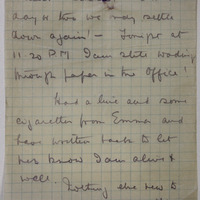 day & thus we may settle
down again! – Tonight at
11.20 P.M I am still wading
through paper in the Office!
Had a line and some
cigarettes from Emma and
have written back to let
her know I am alive &
well. Nothing else new to